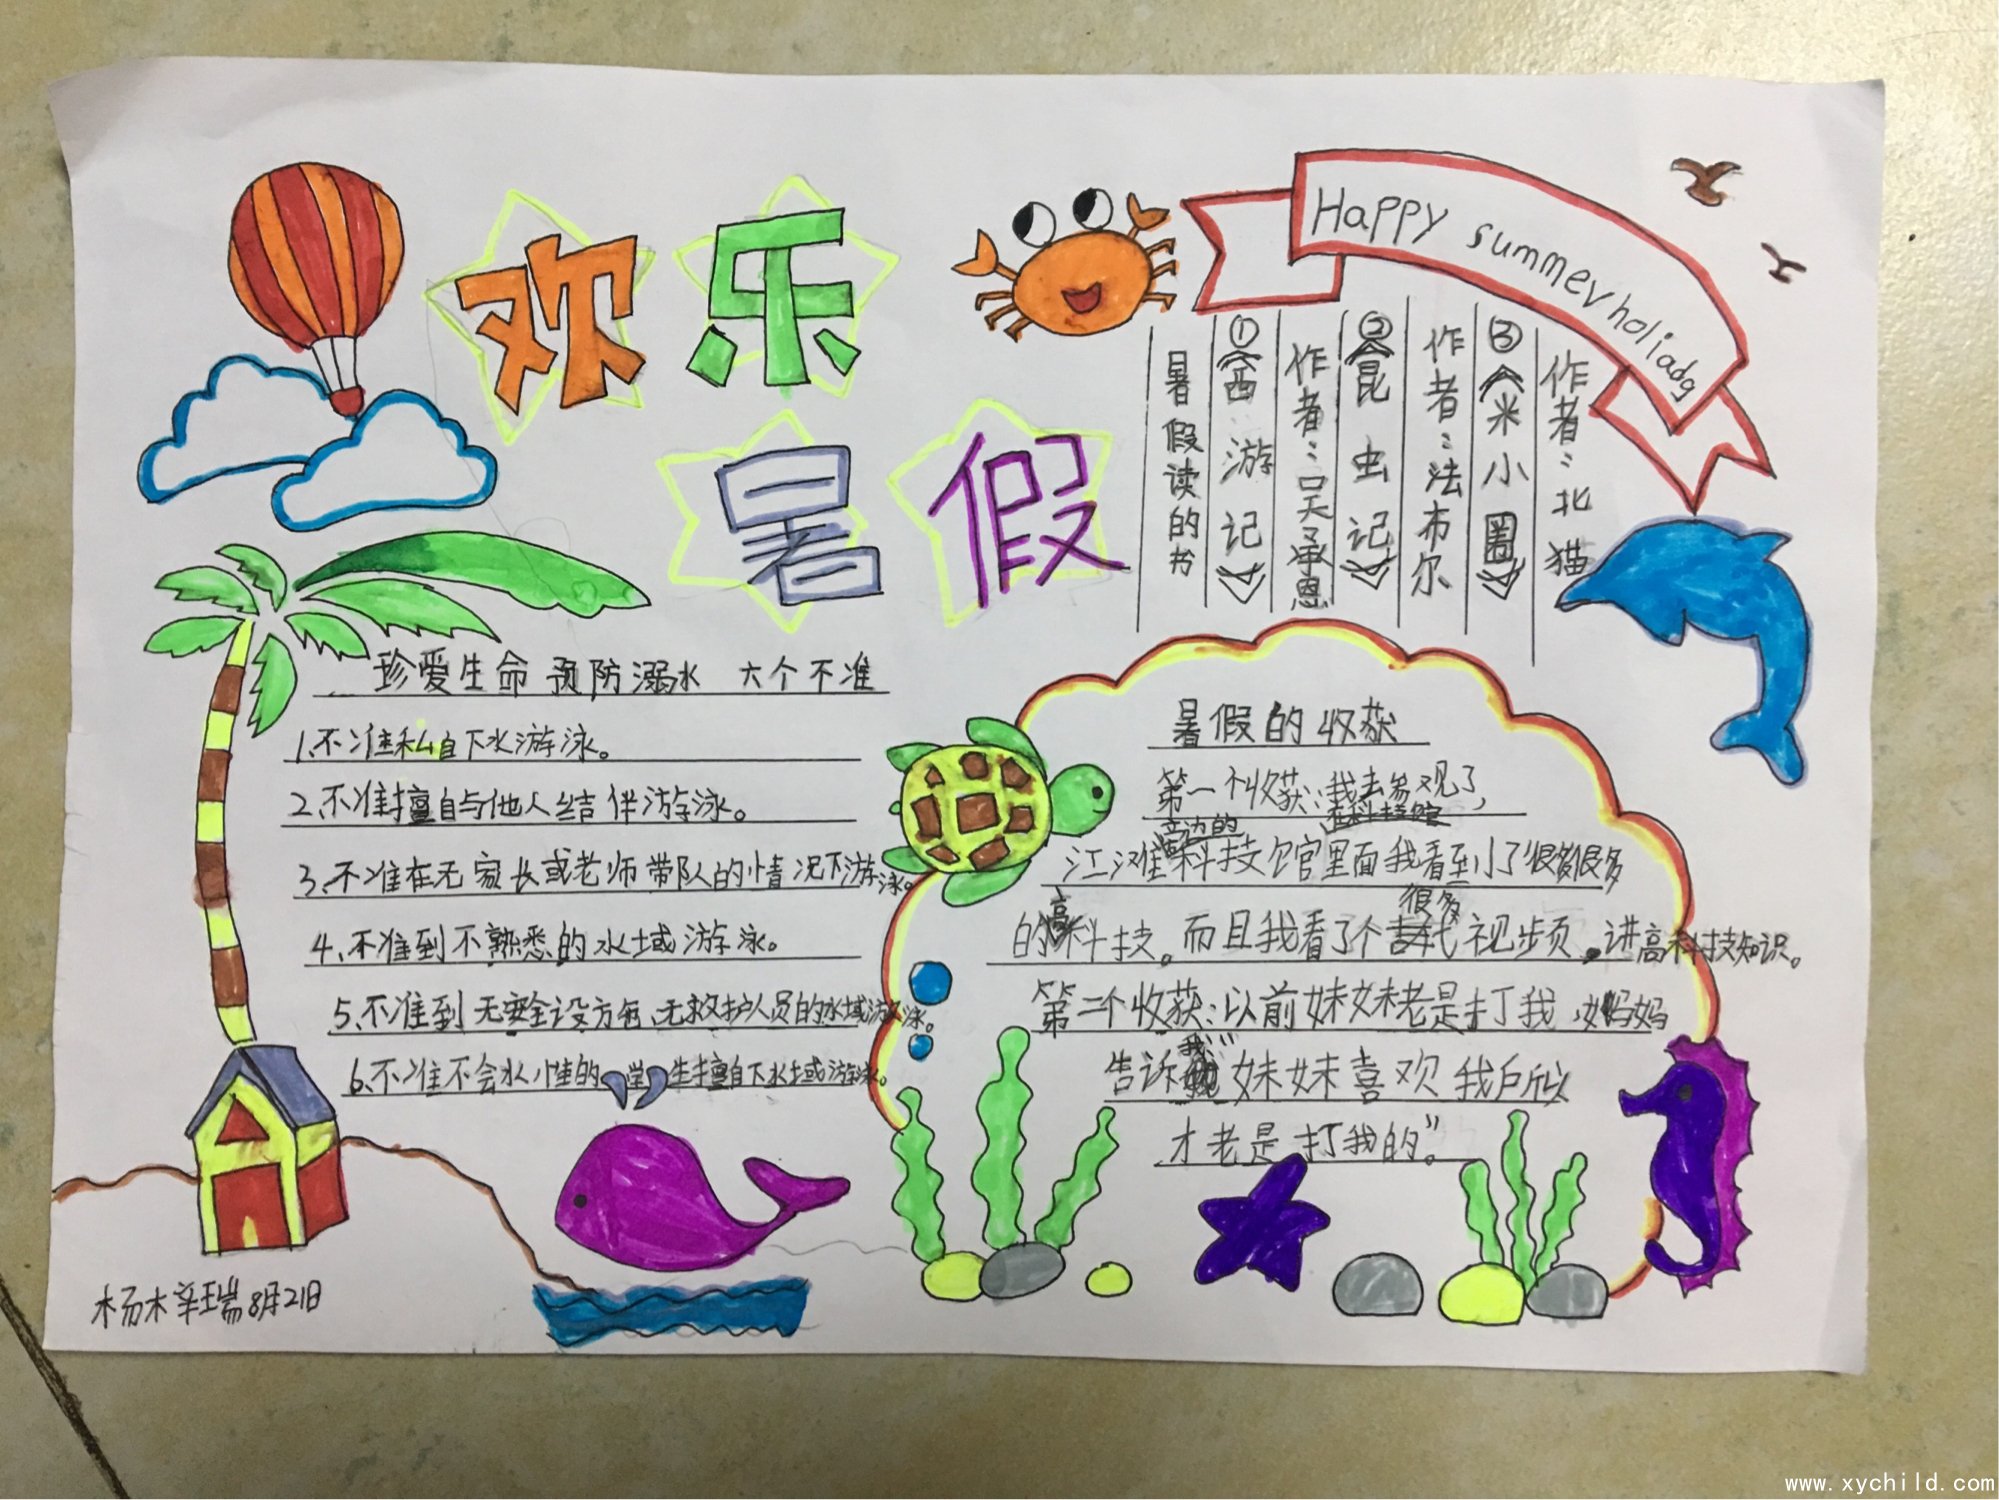 欢乐
暑假
Happy summer holiadg
暑假读的书
①《西游记》
作者：吴承恩
②《昆虫记》
作者：法布尔
③《米小圈》
作者：北猫
珍爱生命 预防溺水 六个不准
1、不准私自下水游泳。
2、不准擅自与他人结伴游泳。
3、不准在无家长或老师带队的情况下游泳。
4、不准到不熟悉的水域游泳。
5、不准到无安全设方每、无救护人员的水域游泳。
6、不准不会水性的学生擅自下水域游泳。
暑假的收获
第一个收获：我去参观了
江滩旁边的科技馆里面我看到了很多很多
的高科技。而且我看了个很多视步页。讲高科技知识。
第二个收获：以前妹妹老是打我，妈妈
告诉我“妹妹喜欢我所以
才老是打我的”。
杨梓瑞8月21日
www.xychild.com